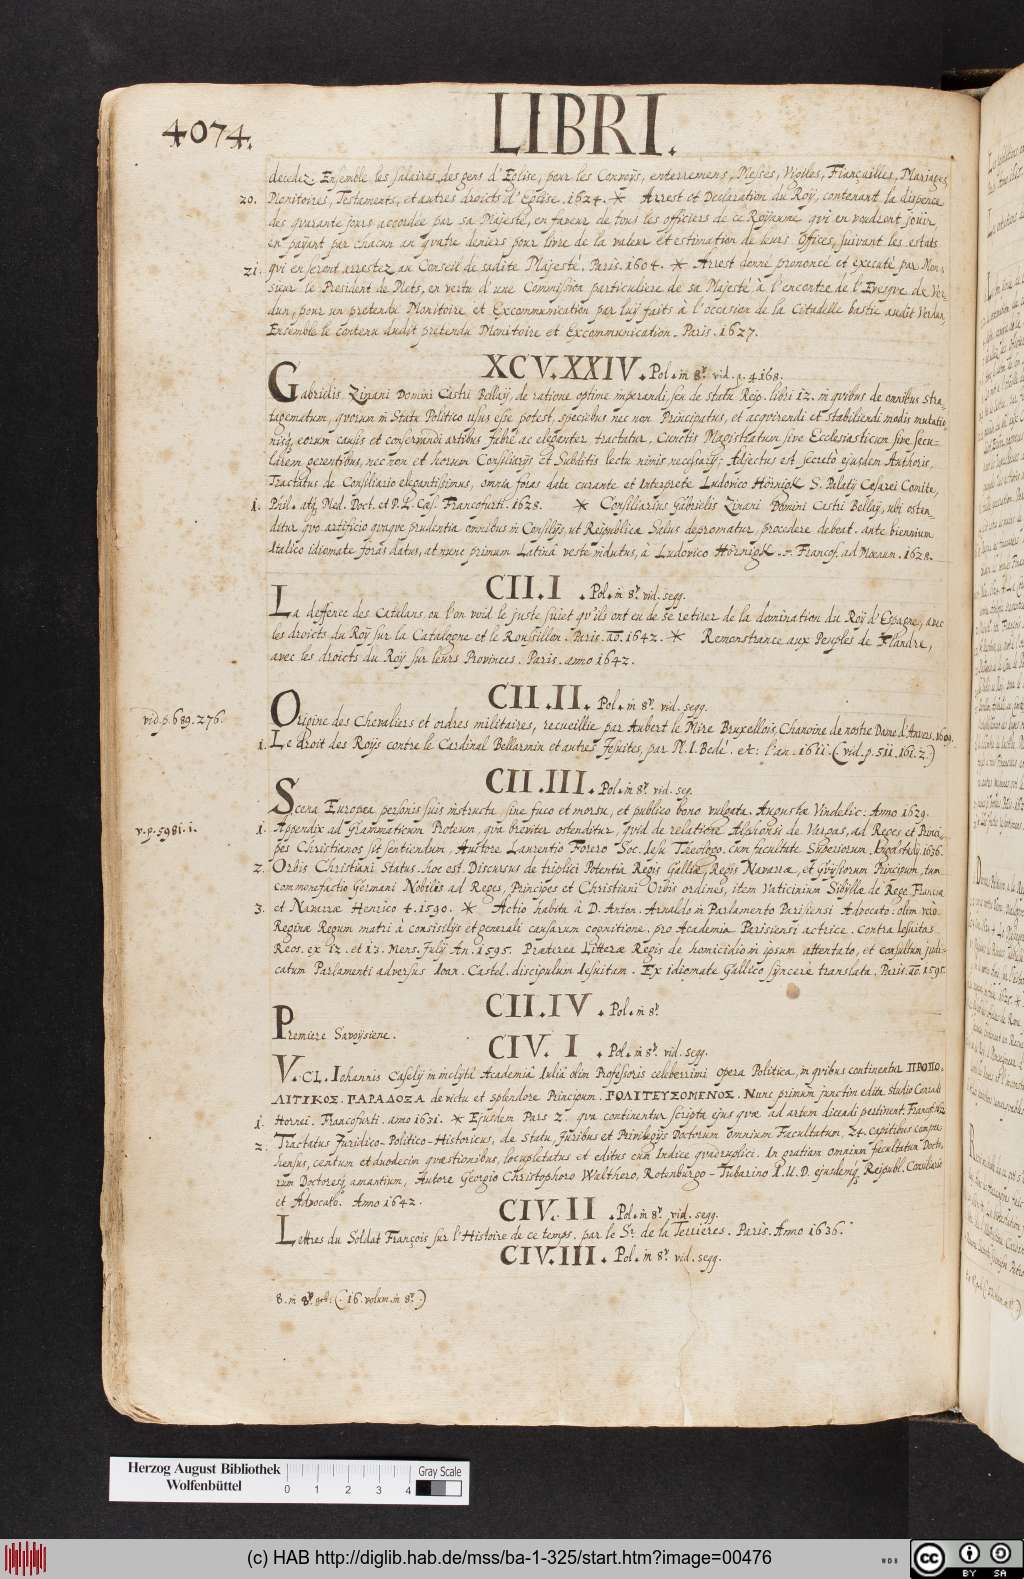 4074.
LIBRI.
decedez. Ensemble les salaires des gens d'Eglise, pour les Convoÿs, enterremens, Messes, Vigiles, Fiançailles, Mariages
20. Monitoires, Testaments, et autres droicts d'Eglise. 1624. * Arrest et Declaration du Roÿ, contenant la dispence
des quarante jours accordée par sa Majesté, en faveur de tous les officiers de ce Roÿaume qui en voudront joüir
en payant par chacun an quatre deniers pour livre de la valeur et estimation de leurs Offices, suivant les estats
21. qui en seront arrestez au Conseil de sadite Majesté. Paris. 1604. * Arrest donné prononcé et executé par Mon-
sieur le President de Mets, en vertu d'une Commission particuliere de sa Majesté à l'encontre de l'Evesque de Ver-
dun, pour un pretendu Monitoire et Excommunication par luÿ faits à l'occasion de la Citadelle bastie audit Verdun,
Ensemble le contenu dudit pretendu Monitoire et Excommunication. Paris. 1627.
XCV.XXIV. Pol. in 8º. vid. p. 4168.
Gabrielis Zinani Domini Castri Bellaÿ, de ratione optime imperandi, seu de statu Reip. libri 12. in quibus de omnibus stra-
tagematum, quorum in Statu Politico usus esse potest, speciebus nec non Principatus, et acquirendi et stabiliendi modis mutatio
nisq; eorum causis et conservandi artibus fabrè ac eleganter tractatur, Cunctis Magistratum sive Ecclesiasticum sive secu-
larem gerentibus, nec non et horum Consiliarÿs et Subditis lectu nimis necessarÿ; Adjectus est secretò ejusdem Authoris,
Tractatus de Consiliario elegantissimus, omnia foras data curante et Interprete Ludovico Hörnigk S. Palatÿ Caesarei Comite,
1. Phil. atq; Med. Doct. et P.L. Caes. Francofurti. 1628. * Consiliarius Gabrielis Zinani Domini Castri Bellaÿ, ubi osten-
ditur quo artificio quaque prudentia omnibus in Consilÿs, ut Reipublicae Salus depromatur, procedere debeat. ante biennium
Italico idiomate foras datus, at nunc primum Latinâ veste indutus, à Ludovico Hörnigk. Francof. ad Moenum. 1628.
CII.I. Pol. in 8º. vid. segg.
La deffence des Catalans, ou l'on void le juste sujet qu'ils ont eu de se retirer de la domination du Roÿ d'Espagne, avec
les droicts du Roÿ sur la Catalogne et le Roussillon. Paris. aõ. 1642. * Remonstrance aux Peuples de Flandre,
avec les droicts du Roÿ sur leurs Provinces. Paris. anno 1642.
CII.II. Pol. in 8º. vid. segg.
vid. p. 689. 276.
Origine des Chevaliers et ordres militaires, recueillie par Aubert le Mire Bruxellois, Chanoine de nostre Dame d'Anvers. 1609.
1. Le droit des Roÿs contre le Cardinal Bellarmin et autres Jesuites, par M. I. Bedé. etc: l'an. 1611. (vid. p. 511. 161. 2.)
CII.III. Pol. in 8º. vid. seg.
Scena Europea personis suis instructa, sine fuco et morsu, et publico bono vulgata. Augustae Vindelic: Anno 1629.
v. p. 5981. 1.
1. Appendix ad Grammaticum Proteum, qua breviter ostenditur, quid de relatione Alphonsi de Vargas, ad Reges et Princi-
pes Christianos sit sentiendum, Auctore Laurentio Forero Soc. Iesu Theologo. cum facultate Superiorum, Ingolstadÿ. 1636.
2. Orbis Christiani Status. hoc est Discursus de triplici Potentia Regis Galliae, Regis Navarrae, et Gvisiorum Principum, tum
commonefactio Germani Nobilis ad Reges, Principes et Christiani Orbis ordines, item Vaticinium Sibyllae de Rege Franciae
3. et Navarrae Henrico 4. 1590. * Actio habita à D. Anton. Arnaldo in Parlamento Parisiensi Advocato: olim verò
Reginae Regum matri à consilÿs et generali causarum cognitione, pro Academia Parisiensi actrice, contra Iesuitas
Reos. ex 12. et 13. Mens. Julÿ An. 1595. Praeterea Litterae Regis de homicidio in ipsum attentato, et consultum judi-
catum Parlamenti adversus Ioan. Castel. discipulum Iesuitam. Ex idiomate Gallico syncere translata. Paris. aõ. 1595.
CII.IV. Pol. in 8º.
Premiere Savoÿsiene.
CIV. I. Pol. in 8º. vid. segg.
V. CL. Iohannis Caselÿ in inclÿtâ Academiâ Iuliâ olim Professoris celeberrimi opera Politica, in quibus continentur ΠΡΟΠΟ-
ΛΙΤΙΚΟΣ. ΠΑΡΑΔΟΞΑ de victu et splendore Principum. ΠΟΛΙΤΕΥΣΟΜΕΝΟΣ. Nunc primùm junctim edita studio Conradi
1. Hornei. Francofurti. anno 1631. * Ejusdem Pars 2. qua continentur scripta ejus quae ad artem dicendi pertinent.
2. Tractatus Juridico-Politico-Historicus, de Statu, Juribus et Privilegÿs Doctorum omnium Facultatum, 24. capitibus compre-
hensus, centum et duodecim quaestionibus, locupletatus et editus cum Indice quadruplici. In gratiam omnium facultatum Docto-
rum Doctoresq; amantium, Autore Georgio Christophoro Walthero, Rotenburgo-Tubarino I.U.D. ejusdemq; Reipubl. Consiliario
et Advocato. Anno 1642.
CIV.II. Pol. in 8º. vid. segg.
Lettres du Soldat François sur l'Histoire de ce temps, par le Sr. de la Terrieres. Paris. Anno 1636.
CIV.III. Pol. in 8º. vid. segg.
8. in 8º. (16. volum. in 8º.)
Herzog August Bibliothek
Wolfenbüttel
0 1 2 3 4
Gray Scale
(c) HAB http://diglib.hab.de/mss/ba-1-325/start.htm?image=00476
WDB
cc BY SA